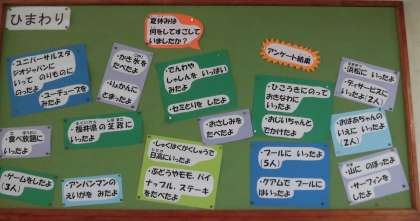 ひまわり
夏休みは
何をしてすごして
いましたか？
アンケート結果
・ユニバーサルスタ
ジオジャパンに
いって のりものに
のったよ
・ユーチューブを
みたよ
・かき氷を
たべたよ
・りょかんに
とまったよ
・でんわや
しゃしんを いっぱい
みたよ
・セミとりをしたよ
・ひこうきにのって
おきなわに
いったよ
・おじいちゃんと
でかけたよ
・浜松に いったよ
・ディサービスに
いったよ（2人）
・食べ放題に
いったよ
・福井県の芝政に
いったよ
・おさしみを
たべたよ
・おばあちゃんの
いえに いったよ
（2人）
・しゅくはくがくしゅうで
日高にいったよ
・ぶどうやモモ、パイ
ナップル、ステーキ
をたべたよ
・プールに いったよ
（5人）
・グアムで プールに
はいったよ
・山に のぼったよ
・サーフィンを
したよ
・ゲームをしたよ
（3人）
・アンパンマンの
えいがを みたよ